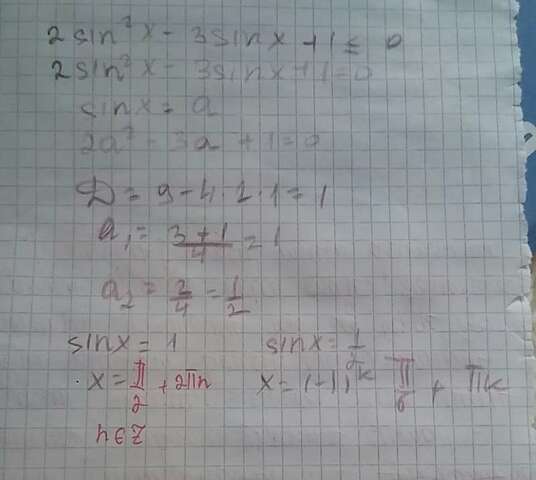 2sin²x - 3sinx + 1 ≤ 0
2sin²x - 3sinx + 1 = 0
sinx = a
2a² - 3a + 1 = 0
D = 9 - 4 · 2 · 1 = 1
a₁ = (3+1)/4 = 1
a₂ = 2/4 = 1/2
sinx = 1 sinx = 1/2
x = π/2 + 2πn x = (-1)ᵏ π/6 + πk